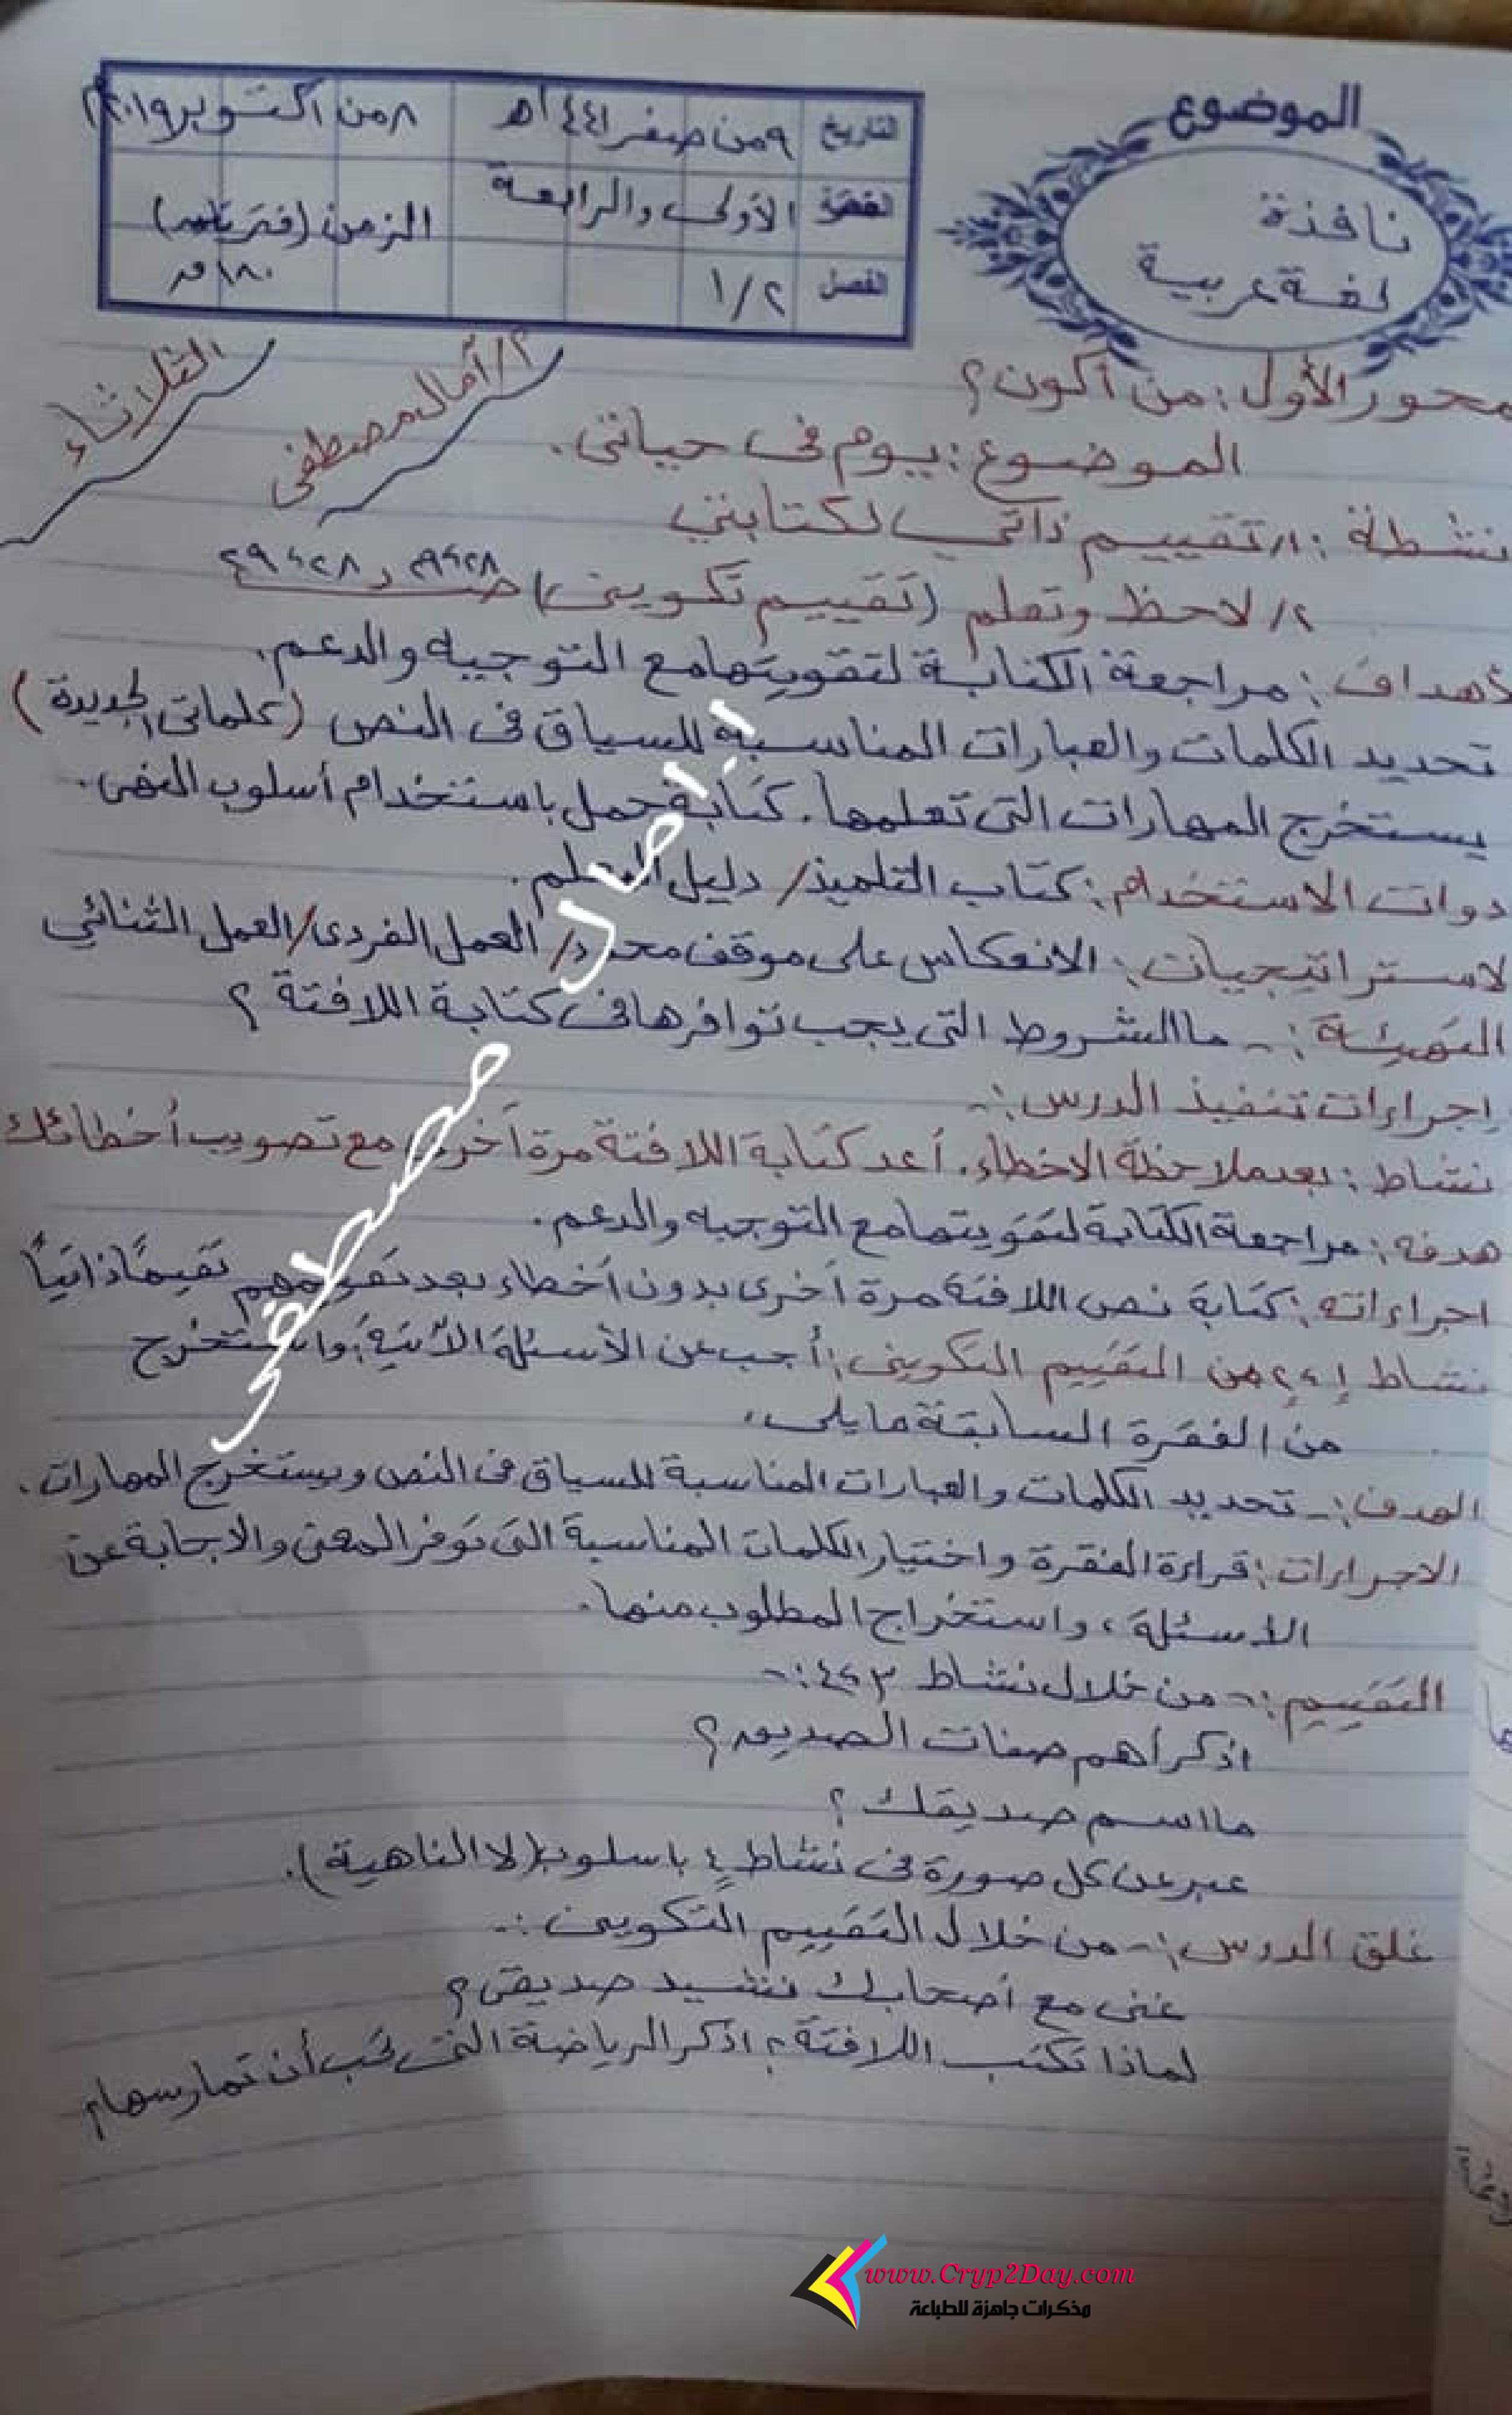 الموضوع
نافذة
لغة عربية
التاريخ ٩من صفر ١٤٤١هـ ٨من أكتوبر٢٠١٩م
الفقرة الأولى والرابعة الزمن (فترتان)
الفصل ١/٢ ١٨٠ق
الثلاثاء
أ/آمال مصطفى
محور الأول: من أكون؟
الموضوع: يوم فى حياتى.
نشطة: ١/ تقييم ذاتي لكتابتي
٢/ لاحظ وتعلم (تقييم تكوينى) صـ
أهداف: مراجعة الكتابة لتقويتها مع التوجيه والدعم.
تحديد الكلمات والعبارات المناسبة للسياق فى النص (كلماتى الجديدة)
يستخرج المهارات التى تعلمها. كتابة جمل باستخدام أسلوب النهى.
دوات الاستخدام: كتاب التلميذ/ دليل المعلم.
لاستراتيجيات: الانعكاس على موقف محدد/ العمل الفردى/العمل الثنائي
التهيئة:- ما الشروط التى يجب توافرها فى كتابة اللافتة؟
إجراءات تنفيذ الدرس:-
نشاط: بعد ملاحظة الاخطاء. أعد كتابة اللافتة مرة أخرى مع تصويب أخطائك
هدفه: مراجعة الكتابة لتقويتها مع التوجيه والدعم.
اجراءاته: كتابة نص اللافتة مرة أخرى بدون أخطاء بعد تقويمهم تقيماً ذاتياً
نشاط ١، ٢ من التقييم التكوينى: أجب عن الأسئلة الآتية: واستخرج
من الفقرة السابقة ما يلى،
الهدف:- تحديد الكلمات والعبارات المناسبة للسياق فى النص ويستخرج المهارات.
الاجراءات: قراءة الفقرة واختيار الكلمات المناسبة التى توفر المعنى والاجابة عن
الأسئلة، واستخراج المطلوب منها.
التقييم:- من خلال نشاط ٣، ٤:-
اذكر أهم صفات الصديق؟
ما اسم صديقك؟
عبر عن كل صورة فى نشاط ٤ باسلوب (لا الناهية).
غلق الدرس:- من خلال التقييم التكوينى:-
غنى مع أصحابك نشيد صديقى؟
لماذا تكتب اللافتة؟ اذكر الرياضة التى تحب أن تمارسها؟
مصطفى
www.Cryp2Day.com
مذكرات جاهزة للطباعة